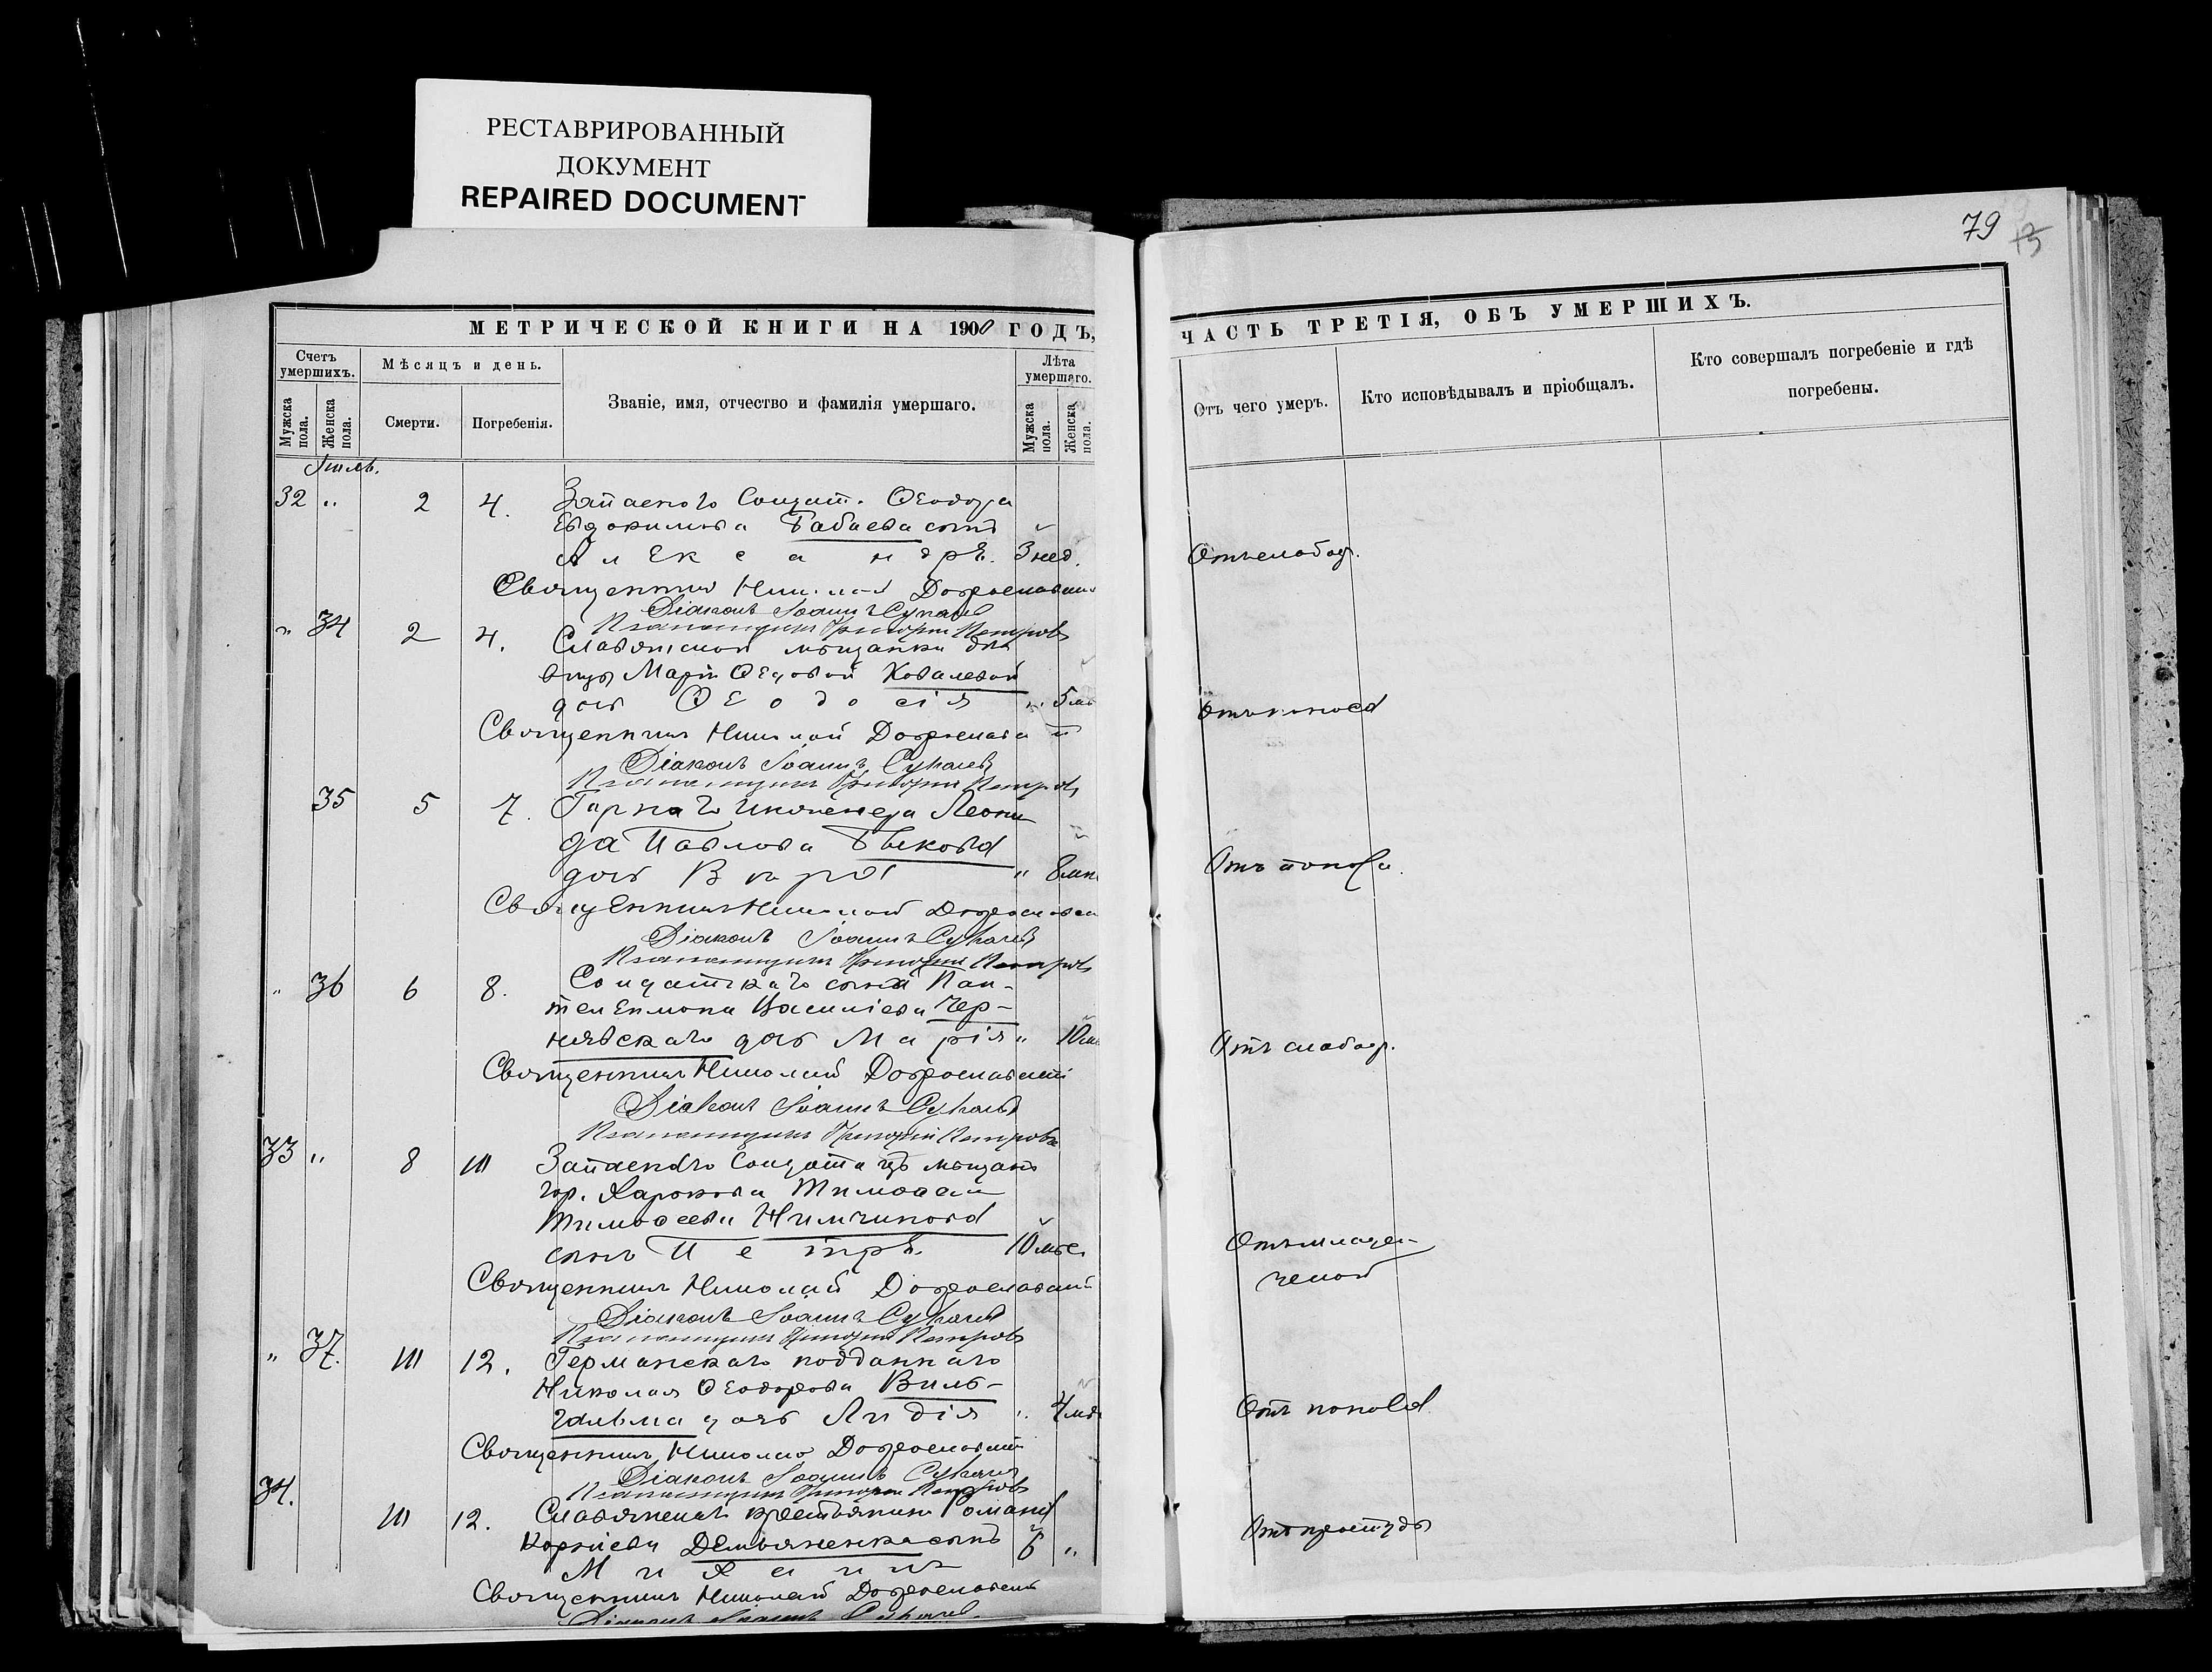 РЕСТАВРИРОВАННЫЙ
ДОКУМЕНТ
REPAIRED DOCUMENT
79
МЕТРИЧЕСКОЙ КНИГИ НА 1900 ГОДЪ,
Счетъ умершихъ.
Мѣсяцъ и день.
Званіе, имя, отчество и фамилія умершаго.
Лѣта умершаго.
Мужска пола.
Женска пола.
Смерти.
Погребенія.
Мужска пола.
Женска пола.
ЧАСТЬ ТРЕТІЯ, ОБЪ УМЕРШИХЪ.
Отъ чего умеръ.
Кто исповѣдывалъ и пріобщалъ.
Кто совершалъ погребеніе и гдѣ
погребены.
32 " 2 4. Запаснаго Солдат. Ѳеодора
Евдокимова Бабаева сынъ
Александръ. 3 нед. Отъ слабос.
Священникъ Николай Доброславскій
Діаконъ Іоаннъ Сукачевъ
Псаломщикъ Григорій Петровъ
" 34 2 4. Славянской мѣщанки дѣ
вицы Маріи Ковалевой
дочь Ѳеодосія " 5 мѣ Отъ поноса
Священникъ Николай Доброславскій
Діаконъ Іоаннъ Сукачевъ
Псаломщикъ Григорій Петровъ
35 5 7. Горнаго Инженера Леони
да Павлова Быкова
дочь Вѣра " 8 мѣс Отъ поноса.
Священникъ Николай Доброславскій
Діаконъ Іоаннъ Сукачевъ
Псаломщикъ Григорій Петровъ
" 36 6 8. Солдатскаго сына Пан-
телеимона Василіева Чер-
нявскаго дочь Марія " 10 мѣ Отъ слабос.
Священникъ Николай Доброславскій
Діаконъ Іоаннъ Сукачевъ
Псаломщикъ Григорій Петровъ
33 " 8 10 Запаснаго Солдата изъ мѣщанъ
гор. Харькова Тимоѳея
Тимоѳеева
сынъ Петръ. 10 мѣс. Отъ младен-
ческой
Священникъ Николай Доброславскій
Діаконъ Іоаннъ Сукачевъ
Псаломщикъ Григорій Петровъ
" 37. 10 12. Германскаго подданнаго
Николая Ѳеодорова Виль-
гельма дочь Лидія " 4 мѣс Отъ поноса
Священникъ Николай Доброславскій
Діаконъ Іоаннъ Сукачевъ
Псаломщикъ Григорій Петровъ
34. 10 12. Романа
Корнiева Демьяненка сынъ 6 " Отъ простуды
Михаилъ
Священникъ Николай Доброславскій
Діаконъ Іоаннъ Сукачевъ.